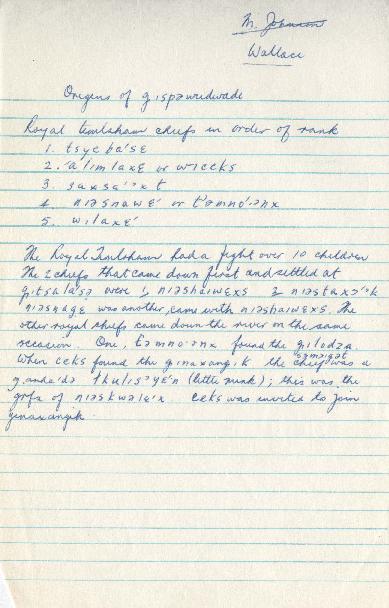 M. Johnson
Wallace
Origins of gispəwudwadε
Royal Timlsham chiefs in order of rank
1. tsycba'sε
2. 'alimlaxε or wiceks
3. saxsa''xt
4. niəsnawε' or t'əmno'ənx
5. wilaxε'
The Royal Timlsham had a fight over 10 children
The 2 chiefs that came down first and settled at
gitsəla'sə were 1, niəshaiwεxs 2 niəstaxɔ'k
niəsnagε was another, came with niəshaiwεxs. The
other royal chiefs came down the river on the same
occasion. One, t'əmno'ənx found the gilodzə
səmɔigət
When ceks found the ginaxangik the chief was a
ganhə'də (little mink); this was the
grfa of niəskwəlε'x. Ceks was invited to join
ginaxangik.